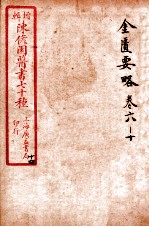 金匱要略 卷六—十
增輯
陳修園醫書七十種
上海廣益書局
印行